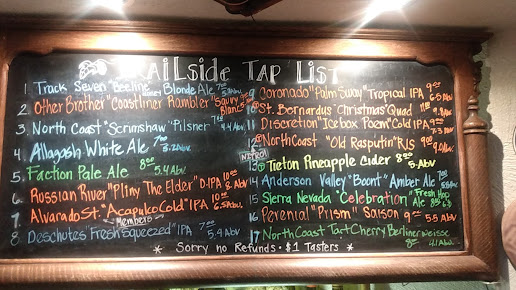 TRAILside TAP LIST
1. Track Seven "Beeline" Blonde Ale
2. Other Brother "Coastliner Rambler"
3. North Coast "Scrimshaw" Pilsner 4.4 Abv.
4. Allagash White Ale
5. Faction Pale Ale 8⁰⁰ 5.4 Abv.
6. Russian River "Pliny The Elder" D.IPA 10⁰⁰ 8. Abv
7. Alvarado St. "Acapulco Cold" IPA 10⁰⁰ 6.5 Abv.
MEMBERS
8. Deschutes "Fresh Squeezed" IPA 5.4 Abv
9 Coronado "Palm Sway" Tropical IPA 9⁰⁰ 6.5 Abv
10 St. Bernardus "Christmas" Quad
11 Discretion "Icebox Poem" Cold IPA
12 North Coast "Old Rasputin" RIS
NITRO
13 Tieton Pineapple Cider 8⁵⁰ 5. Abv
14 Anderson Valley "Boont" Amber Ale
15 Sierra Nevada "Celebration" Fresh Hop Ale
16 Perennial "Prism" Saison 9⁰⁰ 5.5 Abv
17 North Coast Tart Cherry Berlinerweisse
8⁰⁰ 4.1 Abv.
* Sorry no Refunds · $1 Tasters *